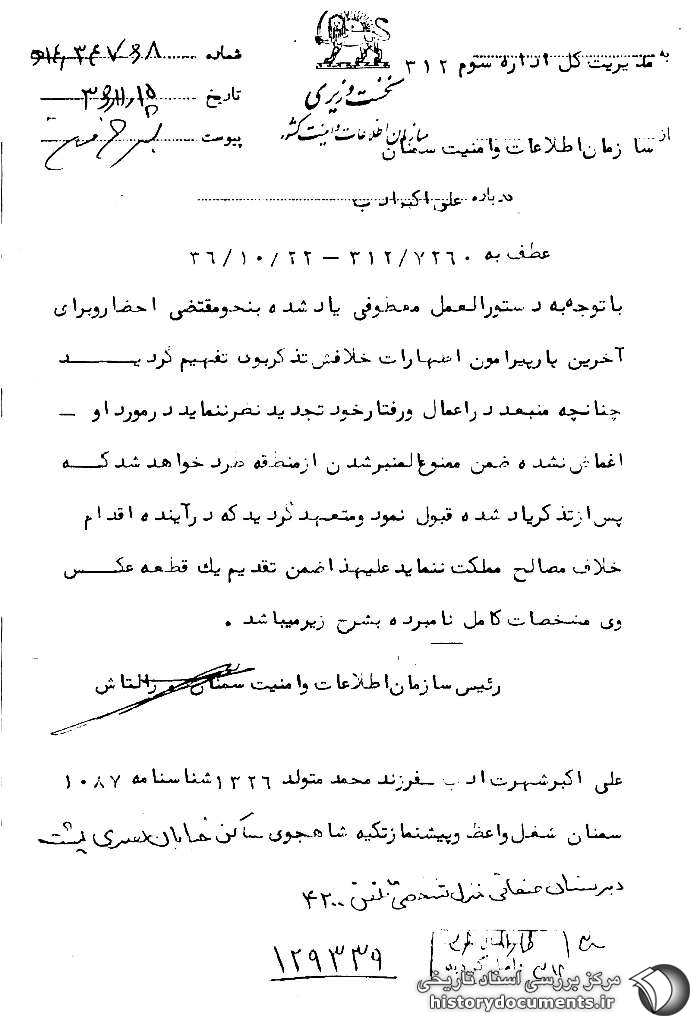 به مدیریت کل اداره سوم ۳۱۲
شماره
نخست وزیری
تاریخ
سازمان اطلاعات و امنیت کشور
پیوست
از سازمان اطلاعات و امنیت سمنان
درباره علی اکبر ادب
عطف به ۳۱۲/۷۲۶۰ – ۳۶/۱۰/۲۲
با توجه به دستورالعمل معطوفی یاد شده بنحو مقتضی احضار و برای
آخرین بار پیرامون اظهارات خلافش تذکر بوی تفهیم گردید
چنانچه منبعد در اعمال و رفتار خود تجدید نظر ننماید در مورد او –
اغماض نشده ضمن ممنوع المنبر شدن از منطقه طرد خواهد شد که
پس از تذکر یاد شده قبول نمود و متعهد گردید که در آینده اقدام
خلاف مصالح مملکت ننماید علیهذا ضمن تقدیم یك قطعه عکس
وی مشخصات کامل نامبرده بشرح زیر میباشد .
رئیس سازمان اطلاعات و امنیت سمنان
علی اکبر شهرت ادب فرزند محمد متولد ۱۳۲۶ شناسنامه ۱۰۸۷
سمنان شغل واعظ و پیشنماز تکیه شاهجوی ساکن خیابان نصری پشت
دبیرستان صنعتی منزل شخصی تلفن ۴۲۰۰
۱۲۹۳۳۹
مرکز بررسی اسناد تاریخی
historydocuments.ir